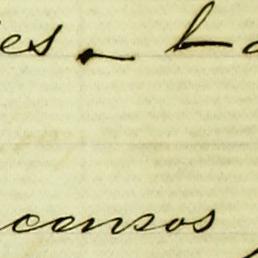 es - t
censos